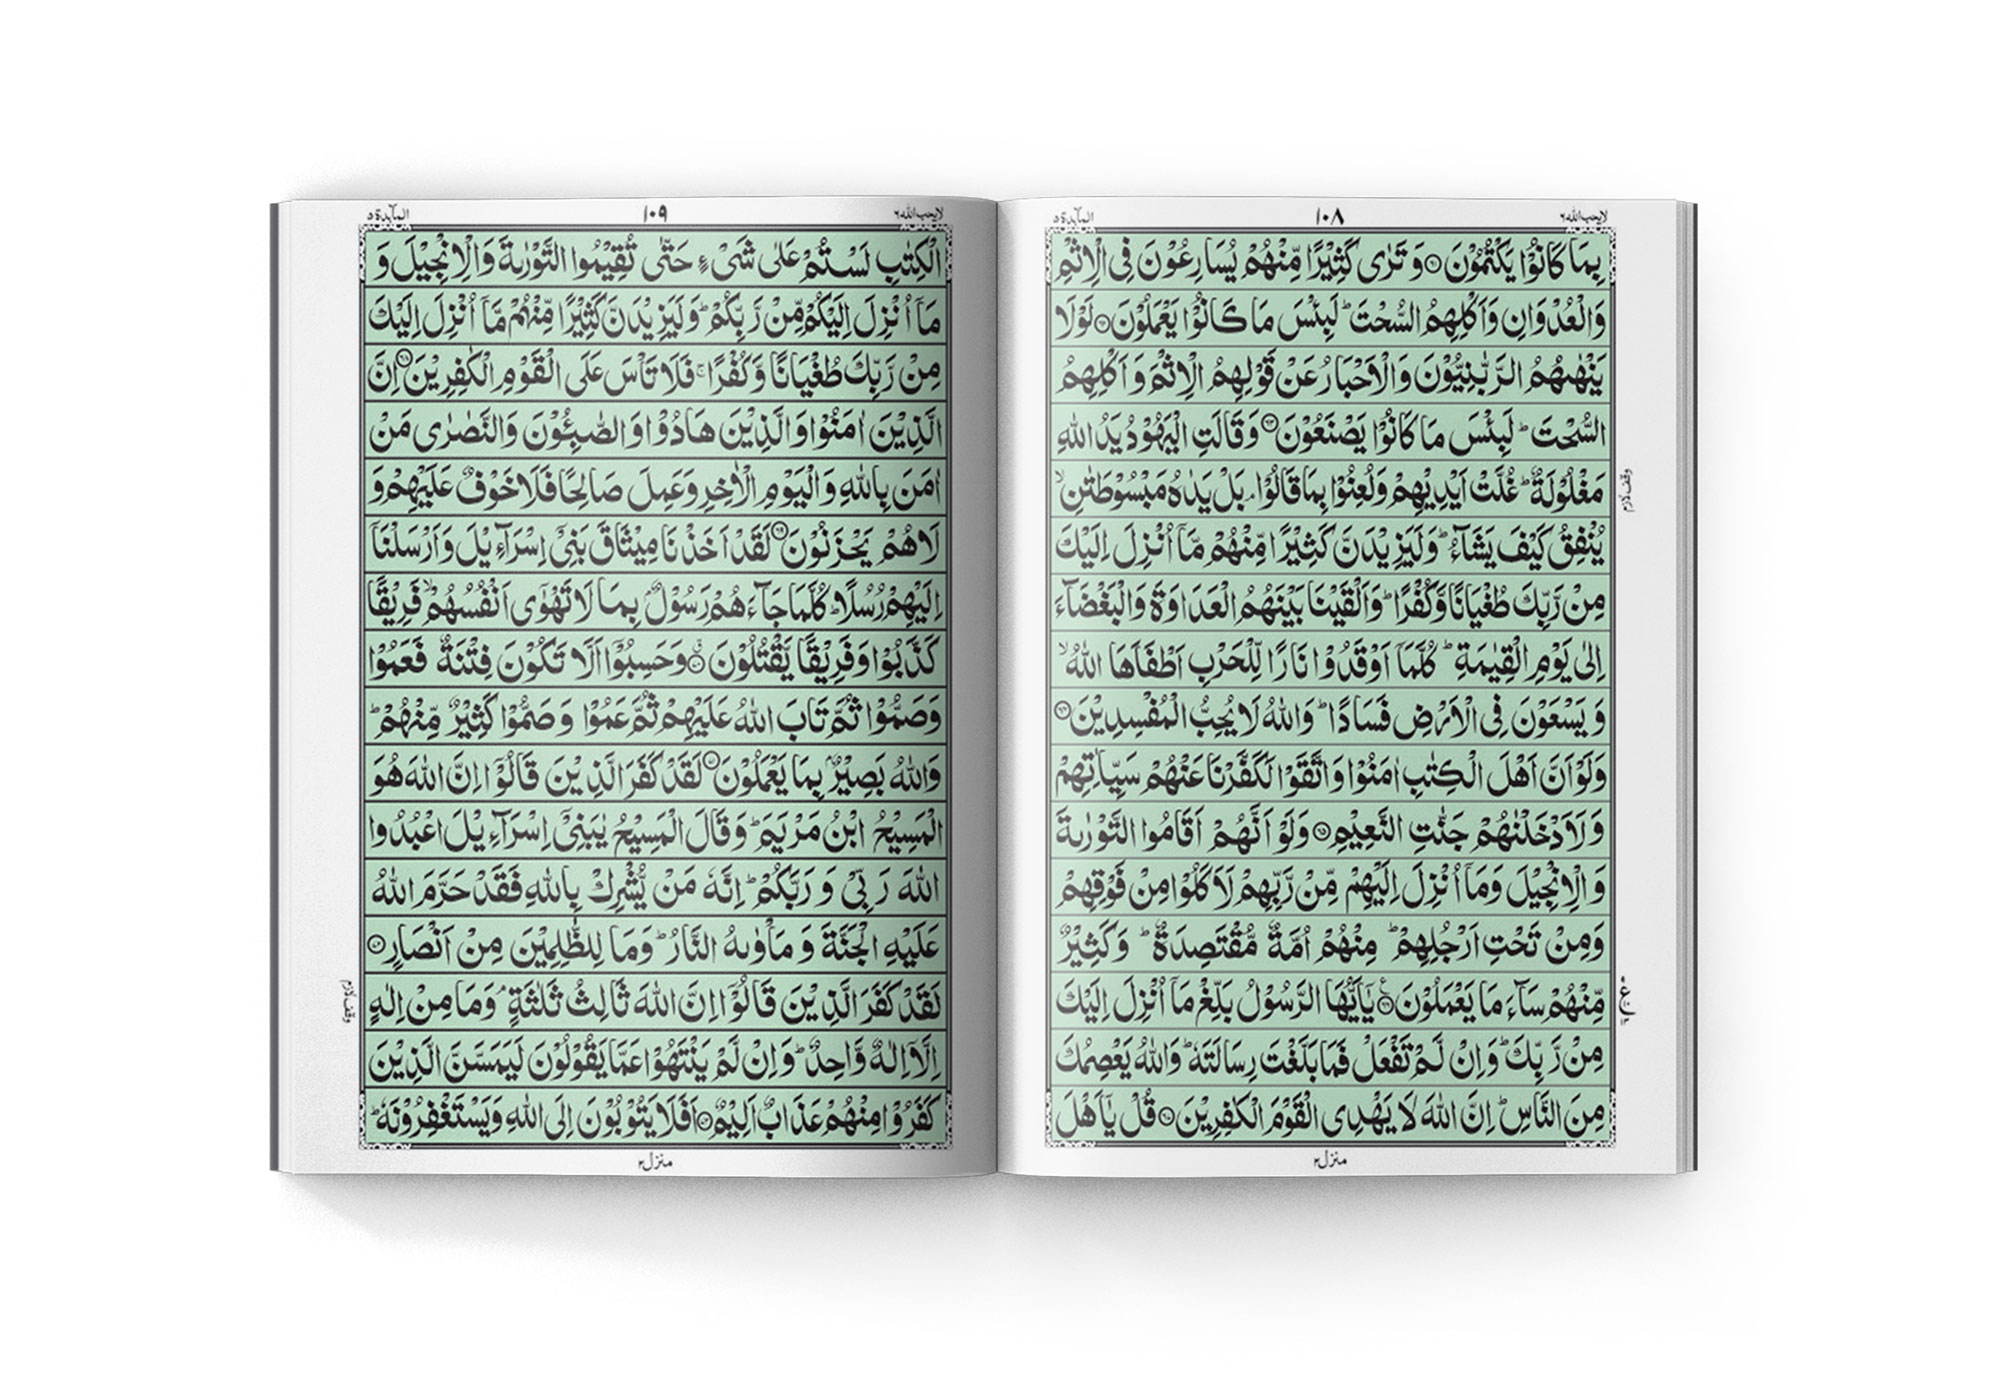 لایحب الله ٦
١٠٨
المآىِدة ٥
بِمَا كَانُوْا يَكْتُمُوْنَ ۝٦١ وَ تَرٰى كَثِيْرًا مِّنْهُمْ يُسَارِعُوْنَ فِى الْاِثْمِ
وَالْعُدْوَانِ وَاَكْلِهِمُ السُّحْتَ ؕ لَبِئْسَ مَا كَانُوْا يَعْمَلُوْنَ ۝٦٢ لَوْلَا
يَنْهٰىهُمُ الرَّبّٰنِيُّوْنَ وَالْاَحْبَارُ عَنْ قَوْلِهِمُ الْاِثْمَ وَ اَكْلِهِمُ
السُّحْتَ ؕ لَبِئْسَ مَا كَانُوْا يَصْنَعُوْنَ ۝٦٣ وَقَالَتِ الْيَهُوْدُ يَدُ اللّٰهِ
مَغْلُوْلَةٌ ؕ غُلَّتْ اَيْدِيْهِمْ وَلُعِنُوْا بِمَا قَالُوْا ۘ بَلْ يَدٰهُ مَبْسُوْطَتٰنِ ۙ
وقف لازم
يُنْفِقُ كَيْفَ يَشَآءُ ؕ وَلَيَزِيْدَنَّ كَثِيْرًا مِّنْهُمْ مَّاۤ اُنْزِلَ اِلَيْكَ
مِنْ رَّبِّكَ طُغْيَانًا وَّكُفْرًا ؕ وَاَلْقَيْنَا بَيْنَهُمُ الْعَدَاوَةَ وَالْبَغْضَآءَ
اِلٰى يَوْمِ الْقِيٰمَةِ ؕ كُلَّمَاۤ اَوْقَدُوْا نَارًا لِّلْحَرْبِ اَطْفَاَهَا اللّٰهُ ۙ
وَ يَسْعَوْنَ فِى الْاَرْضِ فَسَادًا ؕ وَاللّٰهُ لَا يُحِبُّ الْمُفْسِدِيْنَ ۝٦٤
وَلَوْ اَنَّ اَهْلَ الْكِتٰبِ اٰمَنُوْا وَاتَّقَوْا لَكَفَّرْنَا عَنْهُمْ سَيِّاٰتِهِمْ
وَلَاَدْخَلْنٰهُمْ جَنّٰتِ النَّعِيْمِ ۝٦٥ وَلَوْ اَنَّهُمْ اَقَامُوا التَّوْرٰىةَ
وَالْاِنْجِيْلَ وَمَاۤ اُنْزِلَ اِلَيْهِمْ مِّنْ رَّبِّهِمْ لَاَكَلُوْا مِنْ فَوْقِهِمْ
وَمِنْ تَحْتِ اَرْجُلِهِمْ ؕ مِنْهُمْ اُمَّةٌ مُّقْتَصِدَةٌ ؕ وَكَثِيْرٌ
مِّنْهُمْ سَآءَ مَا يَعْمَلُوْنَ ۝٦٦ يٰۤاَيُّهَا الرَّسُوْلُ بَلِّغْ مَاۤ اُنْزِلَ اِلَيْكَ
مِنْ رَّبِّكَ ؕ وَاِنْ لَّمْ تَفْعَلْ فَمَا بَلَّغْتَ رِسَالَتَهٗ ؕ وَاللّٰهُ يَعْصِمُكَ
مِنَ النَّاسِ ؕ اِنَّ اللّٰهَ لَا يَهْدِى الْقَوْمَ الْكٰفِرِيْنَ ۝٦٧ قُلْ يٰۤاَهْلَ
منزل ٢
لایحب الله ٦
١٠٩
المآىِدة ٥
الْكِتٰبِ لَسْتُمْ عَلٰى شَىْءٍ حَتّٰى تُقِيْمُوا التَّوْرٰىةَ وَالْاِنْجِيْلَ وَ
مَاۤ اُنْزِلَ اِلَيْكُمْ مِّنْ رَّبِّكُمْ ؕ وَلَيَزِيْدَنَّ كَثِيْرًا مِّنْهُمْ مَّاۤ اُنْزِلَ اِلَيْكَ
مِنْ رَّبِّكَ طُغْيَانًا وَّكُفْرًا ۚ فَلَا تَاْسَ عَلَى الْقَوْمِ الْكٰفِرِيْنَ ۝٦٨ اِنَّ
الَّذِيْنَ اٰمَنُوْا وَالَّذِيْنَ هَادُوْا وَالصّٰبِـُٔوْنَ وَالنَّصٰرٰى مَنْ
اٰمَنَ بِاللّٰهِ وَالْيَوْمِ الْاٰخِرِ وَعَمِلَ صَالِحًا فَلَا خَوْفٌ عَلَيْهِمْ وَ
لَا هُمْ يَحْزَنُوْنَ ۝٦٩ لَقَدْ اَخَذْنَا مِيْثَاقَ بَنِىْۤ اِسْرَآءِيْلَ وَاَرْسَلْنَاۤ
اِلَيْهِمْ رُسُلًا ؕ كُلَّمَا جَآءَهُمْ رَسُوْلٌۢ بِمَا لَا تَهْوٰۤى اَنْفُسُهُمْ ۙ فَرِيْقًا
كَذَّبُوْا وَفَرِيْقًا يَّقْتُلُوْنَ ۝٧٠ وَحَسِبُوْۤا اَلَّا تَكُوْنَ فِتْنَةٌ فَعَمُوْا
وَصَمُّوْا ثُمَّ تَابَ اللّٰهُ عَلَيْهِمْ ثُمَّ عَمُوْا وَصَمُّوْا كَثِيْرٌ مِّنْهُمْ ؕ
وَاللّٰهُ بَصِيْرٌۢ بِمَا يَعْمَلُوْنَ ۝٧١ لَقَدْ كَفَرَ الَّذِيْنَ قَالُوْۤا اِنَّ اللّٰهَ هُوَ
الْمَسِيْحُ ابْنُ مَرْيَمَ ؕ وَقَالَ الْمَسِيْحُ يٰبَنِىْۤ اِسْرَآءِيْلَ اعْبُدُوا
اللّٰهَ رَبِّىْ وَ رَبَّكُمْ ؕ اِنَّهٗ مَنْ يُّشْرِكْ بِاللّٰهِ فَقَدْ حَرَّمَ اللّٰهُ
عَلَيْهِ الْجَنَّةَ وَ مَاْوٰىهُ النَّارُ ؕ وَمَا لِلظّٰلِمِيْنَ مِنْ اَنْصَارٍ ۝٧٢
لَقَدْ كَفَرَ الَّذِيْنَ قَالُوْۤا اِنَّ اللّٰهَ ثَالِثُ ثَلٰثَةٍ ۘ وَمَا مِنْ اِلٰهٍ
وقف لازم
اِلَّاۤ اِلٰهٌ وَّاحِدٌ ؕ وَاِنْ لَّمْ يَنْتَهُوْا عَمَّا يَقُوْلُوْنَ لَيَمَسَّنَّ الَّذِيْنَ
كَفَرُوْا مِنْهُمْ عَذَابٌ اَلِيْمٌ ۝٧٣ اَفَلَا يَتُوْبُوْنَ اِلَى اللّٰهِ وَيَسْتَغْفِرُوْنَهٗ ؕ
منزل ٢